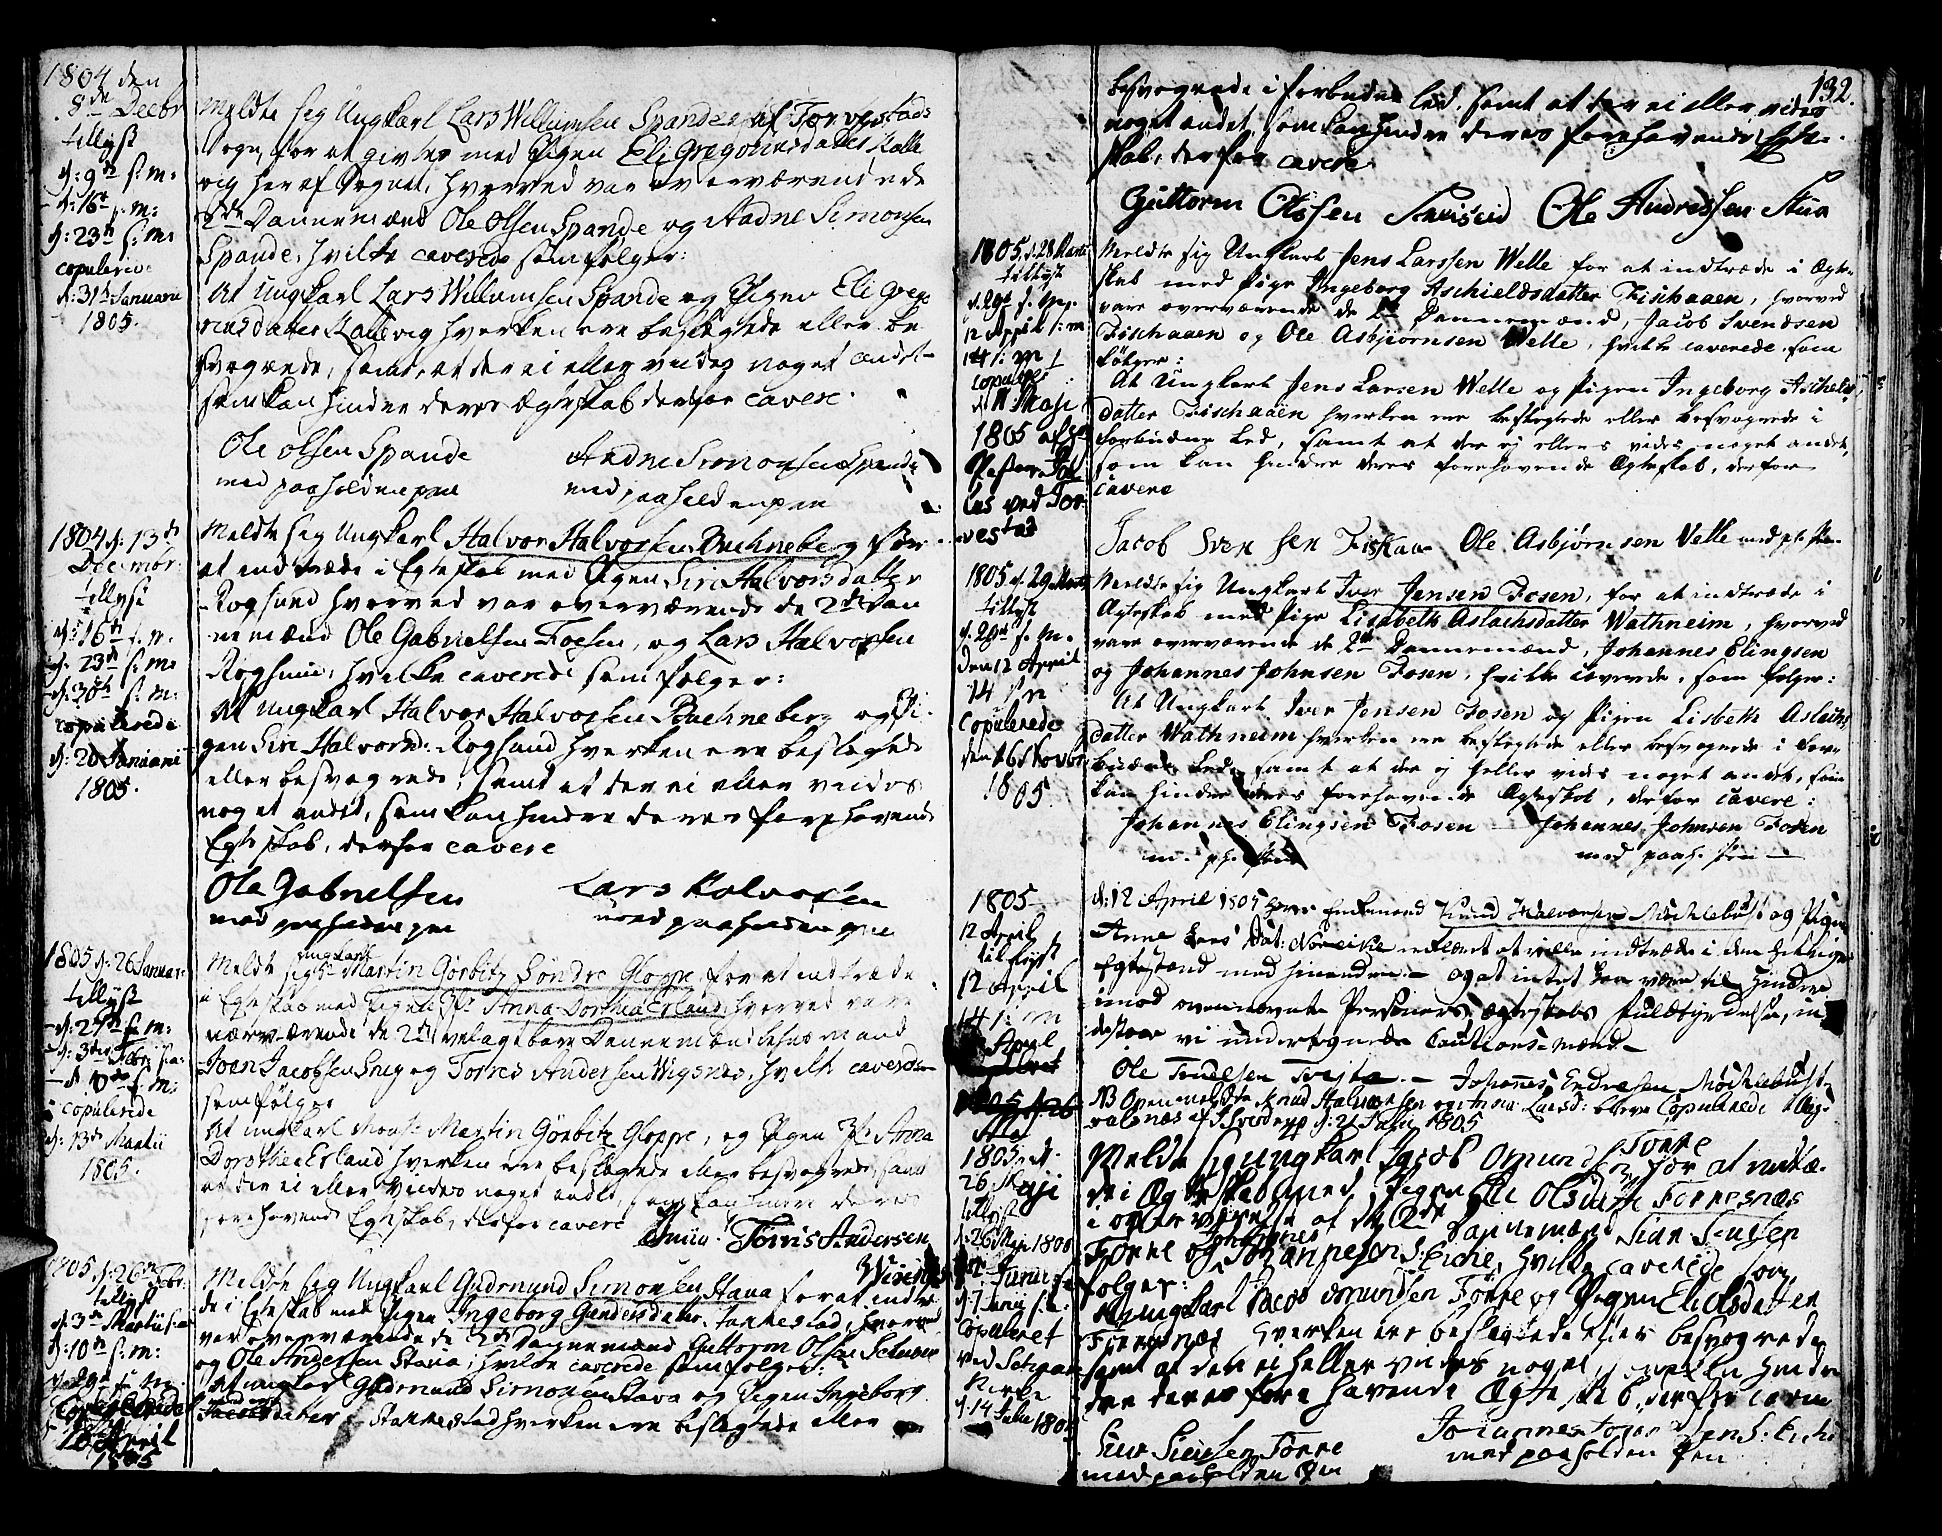 1804 den
8de Decbr
tillyst
d: 9de s: m:
d: 16de s: m:
d: 23de s: m:
copulerede
d: 31te Januarii
1805.
Meldte sig Ungkarl Lars Willumsen Spande af Torvestads
Sogn, for at givtes med Pigen Eli Gregoriusdatter Kalle
vig her af Sognet, hvorved var overværende de
2de Dannemænd Ole Olsen Spande og Aadne Simonsen
Spande, hvilke caverede som følger:
At Ungkarl Lars Willumsen Spande og Pigen Eli Grego
riusdatter Kallevig hverken ere beslægtede eller be
svogrede, samt, at der ei eller vides noget andet
som kan hindre deres Egteskab derfor cavere.
Ole Olsen Spande
med paaholden pen
Aadne Simonsen Spande
med paaholden pen
1804 d: 13de
Decembr:
tillyst
d: 16de s: m:
d: 23de s: m:
d: 30te s: m:
copulerede
d: 20 Januarii
1805.
Meldte sig Ungkarl Halvor Halvorsen Buehneberg for
at indtræde i Egteskab med Pigen Siri Halvorsdatter
Rogsund hvorved var overværende de 2de Dan
nemænd Ole Gabrielsen Foesen, og Lars Halvorsen
Rogsund, hvilke caverede som følger:
At Ungkarl Halvor Halvorsen Buehneberg og Pi-
gen Siri Halvorsd: Rogsund hverken ere beslegtede
eller besvogrede, samt at der ei eller vides
noget andet, som kan hindre deres forehavende
Egteskab, derfor cavere
Ole Gabrielsen
med paaholden pen
Lars Halvorsen
med paaholden pen
1805 d: 26 Januar:
tillyst
d: 27de s: m:
d: 3de Febr:
s: m:
copulerede
d: 13de Martii
1805.
Meldte sig ungkarl Hr. Martin Görbitz Søndre Gloppe for at indtræde
i Egteskab med Pigen Jfr. Anna Dorthea Erland, hvorved vare
nærværende de 2de velagtbare Dannemænd
Joen Jacobsen Snig og Torres Andersen Wignes, hvilke caverede
som følger
At ungkarl Mons: Martin Görbitz Gloppe, og Pigen Jfr. Anna
Dorothea Erland hverken ere beslegtede eller besvogrede, samt
at der ei eller vides noget andet, som kan hindre deres
forehavende Egteskab, derfor cavere
Torris Andersen
1805 d: 26de Febr:
tillyst
d: 3de Martii
d: 10de s: m:
Copulerede
16 April
1805
Meldte sig Ungkarl Gudmund Simonsen Stava for at indtræ
de i Egteskab med Pigen Ingeborg Gundersdatter Stannestad, hvorved
var overværende de 2de Dannemænd Guttorm Olsen
og Ole Andersen Stava, hvilke caverede som følger:
At ungkarl Gudmund Simonsen Stava og Pigen Ingeborg
Stannestad hverken ere beslegtede eller
132.
besvogrede i forbudne led, samt at der ei eller vides
noget andet, som kan hindre deres forehavende Egte-
skab, derfor cavere
Guttorm Olsen Ole Andressen Stua
1805 d. 28 Martii
tillyst
12 April s: m
14 s: m
copuleret
d. Maji
1805 af Hr
ved Tor-
vestad
Meldte sig Ungkarl Jens Larssen Welle for at indtræde i Ægte-
skab med Pige Ingeborg Aschieldsdatter Fischaaen, hvorved
vare overværende de 2de Dannemænd, Jacob Svendsen
Fischaaen og Ole Asbjørnsen Welle, hvilke caverede som
følger:
At Ungkarl Jens Larsen Welle og Pigen Ingeborg Aschields
datter Fischaaen hverken ere beslegtede eller besvogrede i
forbudne Led, samt at der ej ellers vides noget andet,
som kan hindre deres forehavende Egteskab, derfor
cavere
Jacob Svensen Fiskaa Ole Asbjørnsen Velle med ph. Pen
1805 d. 29 Martii
tillyst
d. 29de s. M.
Den 12 April
14 s: m
Copulerede
den 16 Novbr
1805.
Meldte sig Ungkarl Iver Jensen Fosen, for at indtræde i
Ægteskab med Pige Lisabeth Aslachsdatter Wathneim, hvorved
vare overværende de 2de Dannemænd, Johannes Elingsen
og Johannes Johnsen Fosen, hvilke caverede, som følger:
At Ungkarl Iver Jensen Fosen og Pigen Lisbeth Aslachs
datter Wathneim hverken ere beslegtede eller besvogrede i for-
budne Led, samt at der ej heller vides noget andet, som
kan hindre deres forehavende Ægteskab, derfor cavere:
Johannes Elingsen Fosen
m. ph. Pen
Johannes Johnsen Fosen
med paah. Pen
1805
12 April
tillyst
12 April
14 s: m
April
d: 12 April 1805 have Enkemand Knud Halvorsen Møchlebust og Pigen
Anne Lars Dat: Norvike erklæret at ville indtræde i den hellige
Egtestand med hinanden — og at intet kan være til Hinder
imod ovennevnte Personers Ægteskabs Fuldbyrdelse, in
destaae vi undertegnede Cautions-mænd —
Ole Johannes Endresen Møchlebust
NB Ovenmeldte Knud Halvorsen og Anna Larsd: bleve Copulerede i
af d: 21 Julii 1805
1805 d.
26 Maji
tillyst
d: 26 Maji 1805
Junii
d: 7 Junii s. m.
Copuleret
ved
Kirke
d: 14 Julii 1805
Meldte sig ungkarl Jacob Osmundsen Førre for at indtræ-
de i Ægteskab med Pigen Eli Olsdatter Førresnæs
i overværelse af de 2de Dannemænd Siur Siursen
Førre og Johannes Johannesen S: Eiche, hvilke caverede som
følger:
At ungkarl Jacob Osmundsen Førre og Pigen Eli Olsdatter
Førresnæs hverken ere beslegtede eller besvogrede
samt at der ei heller vides noget, som kan hindre
deres forehavende Ægteskab, derfor cavere
Siur Siursen Førre
med paaholden Pen
Johannes Johannessen S: Eiche
med paaholden Pen